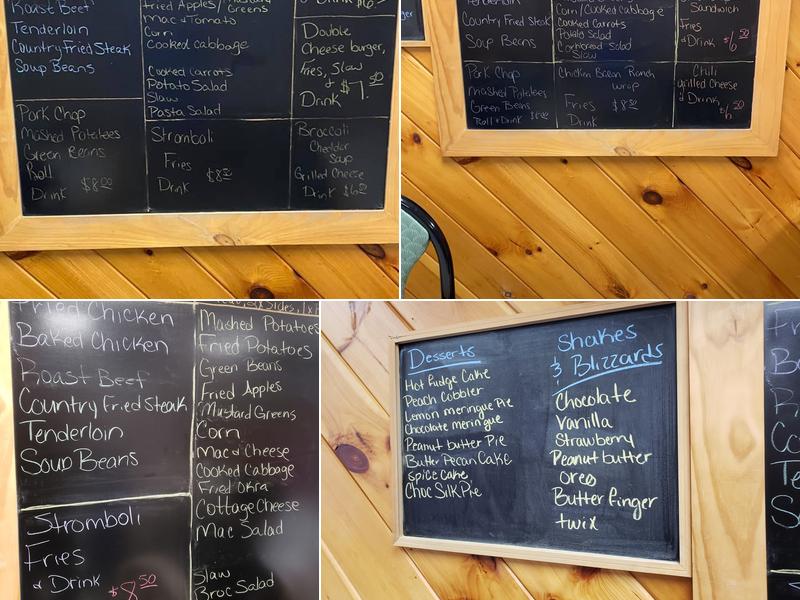 Roast Beef
Tenderloin
Country Fried Steak
Soup Beans
Pork Chop
Mashed Potatoes
Green Beans
Roll
Drink $8.00
Fried Apples/Mustard Greens
Mac & Tomato
Corn
Cooked Cabbage
Cooked Carrots
Potato Salad
Slaw
Pasta Salad
Stromboli
Fries
Drink $8.50
Double
Cheese burger,
Fries, Slaw
&
Drink $7.50
Broccoli
Cheddar
Soup
Grilled Cheese
Drink
Country Fried Steak
Soup Beans
Pork Chop
Mashed Potatoes
Green Beans
Roll & Drink
Corn/Cooked Cabbage
Cooked Carrots
Potato Salad
Cornbread Salad
Slaw
Chicken Bacon Ranch
Wrap
Fries
Drink $8.50
Sandwich
Fries
& Drink
Chili
Grilled Cheese
& Drink
Fried Chicken
Baked Chicken
Roast Beef
Country Fried Steak
Tenderloin
Soup Beans
Stromboli
Fries
& Drink $8.50
Mashed Potatoes
Fried Potatoes
Green Beans
Fried Apples
Mustard Greens
Corn
Mac & Cheese
Cooked Cabbage
Fried Okra
Cottage Cheese
Mac Salad
Slaw
Broc Salad
Desserts
Hot Fudge Cake
Peach Cobbler
Lemon meringue Pie
Chocolate meringue
Peanut butter Pie
Butter Pecan Cake
Spice Cake
Choc Silk Pie
Shakes
& Blizzards
Chocolate
Vanilla
Strawberry
Peanut butter
Oreo
Butterfinger
twix